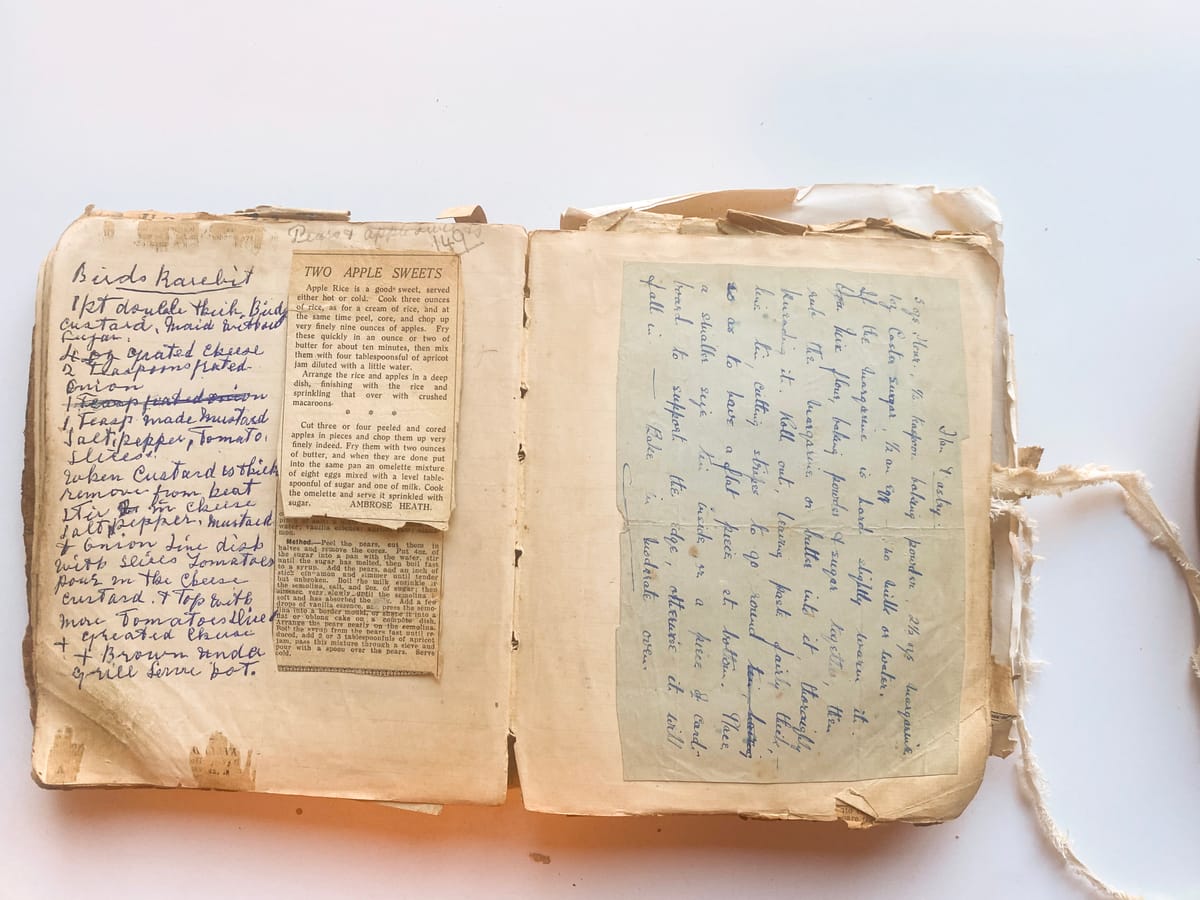 Birds Rarebit
1 pt double thick Birds
Custard, Maid without
Sugar.
4 oz grated cheese
2 Teaspoons grated
Onion
1 Teasp made Mustard
Salt, pepper, Tomato,
Slices.
When Custard is thick
remove from heat
Stir in cheese
Salt pepper, mustard
+ onion line dish
with slices Tomatoes
pour in the cheese
custard. + top with
more Tomatoes slices
+ greated cheese
+ + Brown under
grill serve hot.
Pears & apple
149
TWO APPLE SWEETS
Apple Rice is a good sweet, served
either hot or cold. Cook three ounces
of rice, as for a cream of rice, and at
the same time peel, core, and chop up
very finely nine ounces of apples. Fry
these quickly in an ounce or two of
butter for about ten minutes, then mix
them with four tablespoonsful of apricot
jam diluted with a little water.
Arrange the rice and apples in a deep
dish, finishing with the rice and
sprinkling that over with crushed
macaroons.
* * *
Cut three or four peeled and cored
apples in pieces and chop them up very
finely indeed. Fry them with two ounces
of butter, and when they are done put
into the same pan an omelette mixture
of eight eggs mixed with a level table-
spoonful of sugar and one of milk. Cook
the omelette and serve it sprinkled with
sugar. AMBROSE HEATH.
water, vanilla essence,
Method.—Peel the pears, cut them in
halves and remove the cores. Put 4oz. of
the sugar into a pan with the water, stir
until the sugar has melted, then boil fast
to a syrup. Add the pears, and an inch of
stick cinnamon and simmer until tender
but unbroken. Boil the milk, sprinkle in
the semolina, salt, and 2oz. of sugar; then
simmer very slowly until the semolina is
soft and has absorbed the Add a few
drops of vanilla essence, press the semo-
lina into a border mould, or shape it into a
flat or oblong cake on a compôte dish.
Arrange the pears neatly on the semolina.
Boil the syrup from the pears fast until re-
duced, add 2 or 3 tablespoonfuls of apricot
jam, pass this mixture through a sieve and
pour with a spoon over the pears. Serve
cold.
Flan Pastry.
5 ozs flour, ½ teaspoon baking powder 2½ ozs margarine
1 oz Castor sugar, ½ an egg no milk or water.
If the margarine is hard slightly warm it.
flour, baking powder & sugar together, then
rub the margarine or butter into it thoroughly
kneading it. Roll out, leaving paste fairly thick,
line tin, cutting stripes to go round tin, having
so as to have a flat piece at bottom. Place
a smaller size tin inside or a piece of card-
board to support the edge, otherwise it will
fall in — Bake in moderate oven.